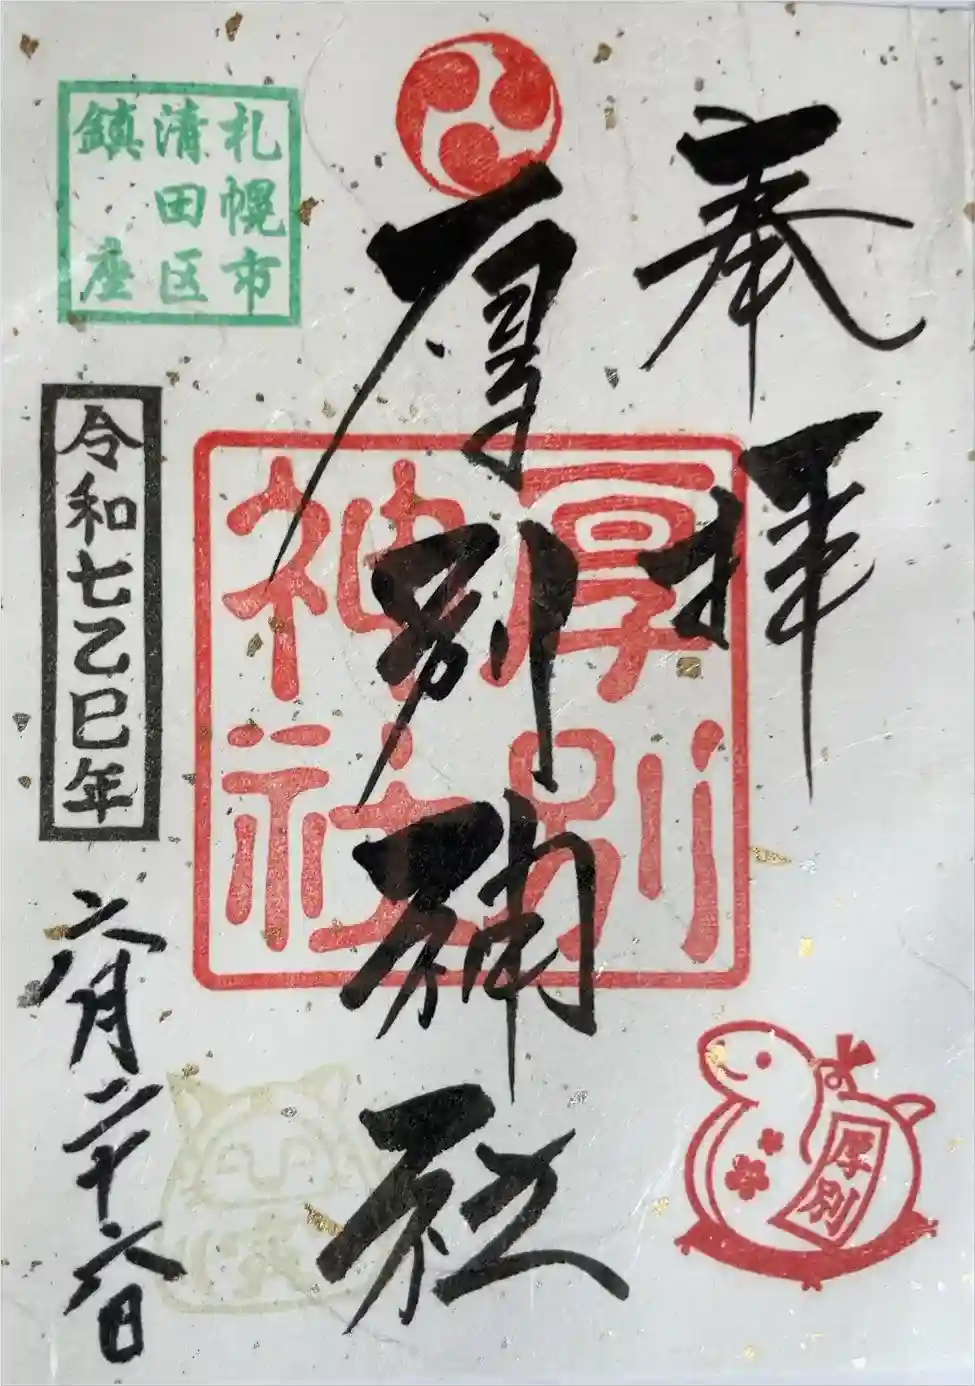 奉拝
厚別神社
厚別神社
札幌市
清田区
鎮座
令和七乙巳年
六月二十六日
厚別